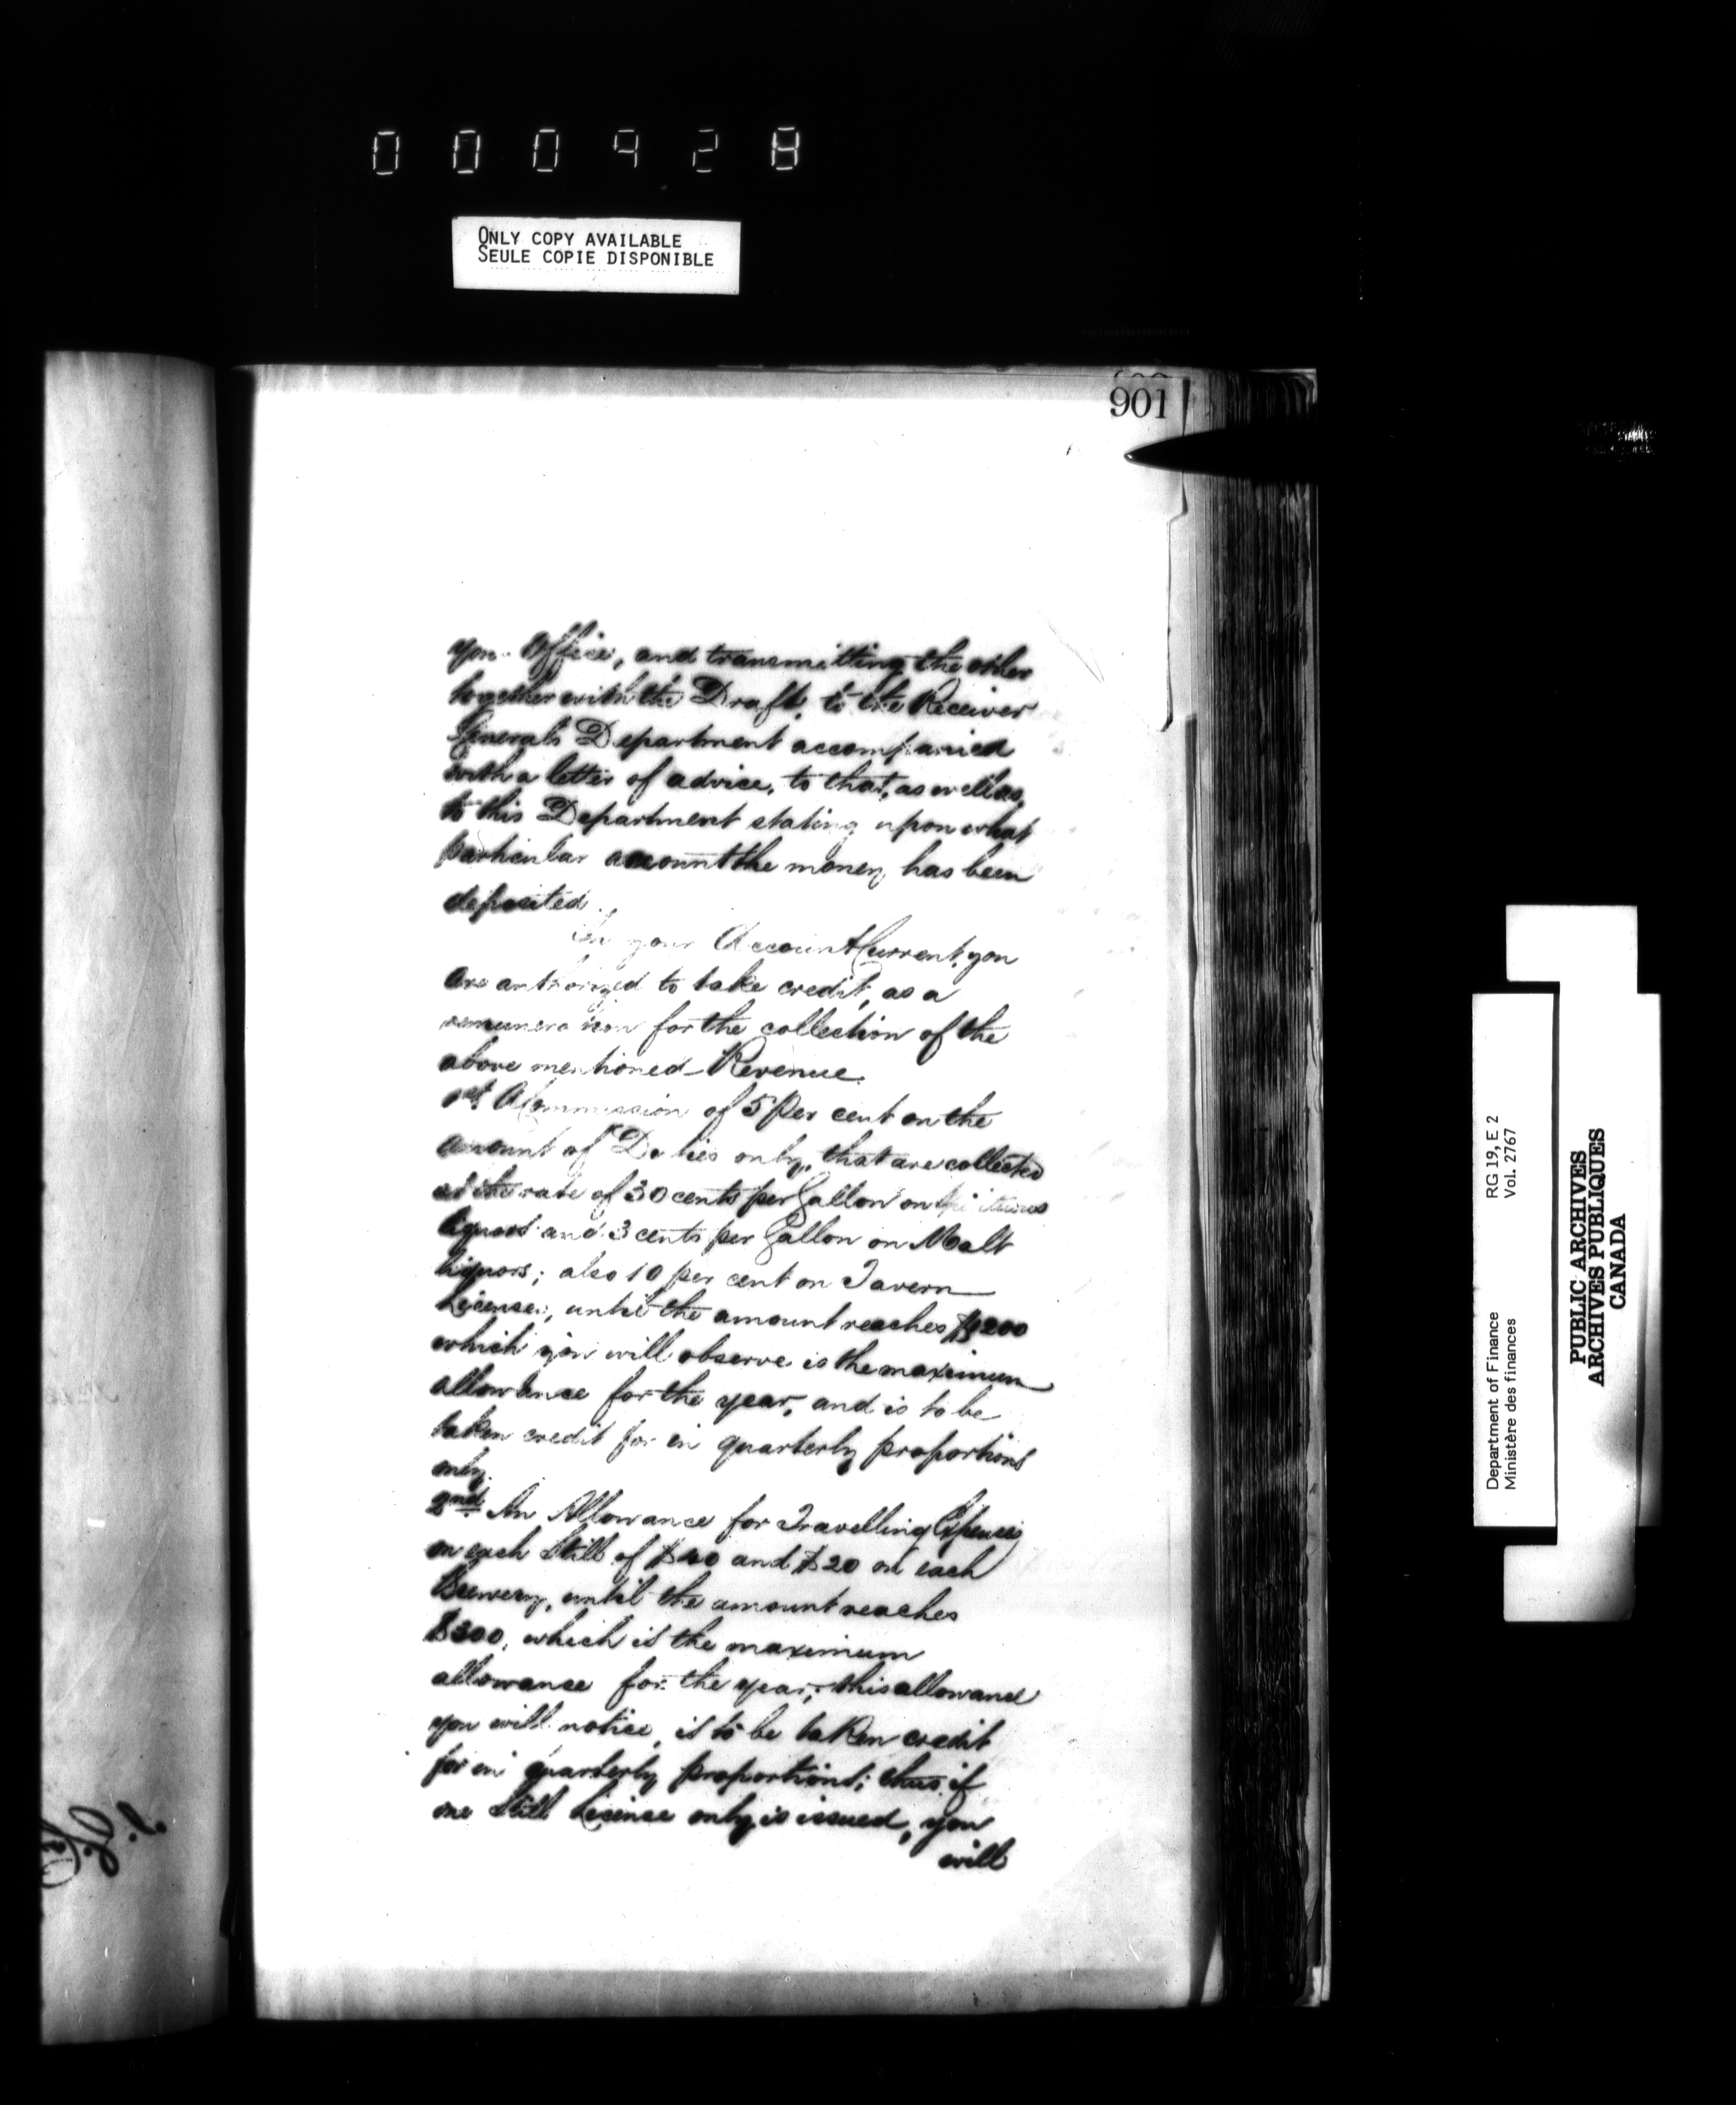 000928
ONLY COPY AVAILABLE
SEULE COPIE DISPONIBLE
901
your Office, and transmitting the other
together with the Draft, to the Receiver
Generals Department accompanied
with a letter of advice, to that, as well as,
to this Department stating upon what
particular account the money has been
deposited.
In your Account Current, you
are authorized to take credit, as a
remuneration for the collection of the
above mentioned Revenue.
1st A Commission of 5 Per cent on the
amount of Duties only, that are collected
at the rate of 30 cents per Gallon on Spirituous
liquors and 3 cents per Gallon on Malt
liquors; also 10 per cent on Tavern
Licenses, until the amount reaches $1200
which you will observe is the maximum
allowance for the year, and is to be
taken credit for in quarterly proportions
only.
2nd An Allowance for Travelling Expenses
on each Still of $40 and $20 on each
Brewery, until the amount reaches
$300, which is the maximum
allowance for the year; this allowance
you will notice, is to be taken credit
for in quarterly proportions; thus if
one Still License only is issued, you
will
Department of Finance RG 19, E 2
Ministère des finances Vol. 2767
PUBLIC ARCHIVES
ARCHIVES PUBLIQUES
CANADA